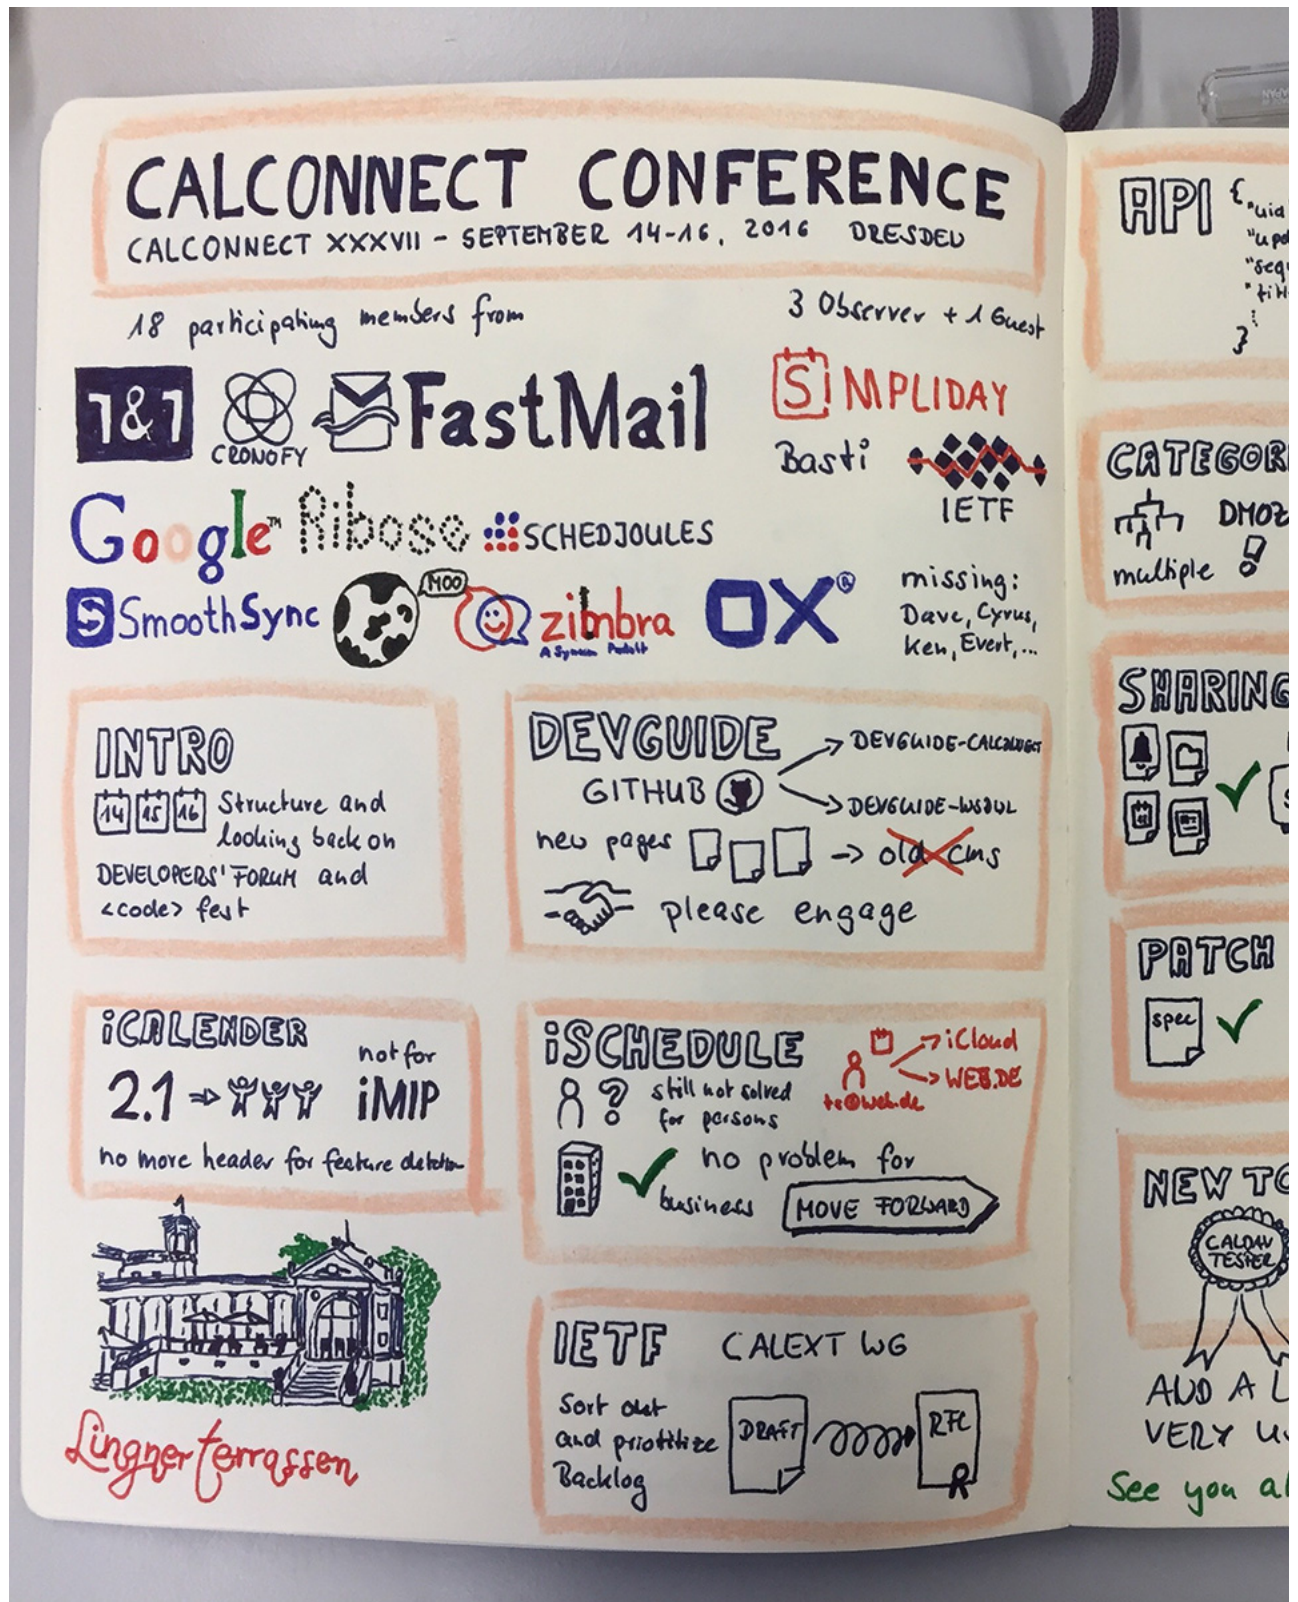 CALCONNECT CONFERENCE
CALCONNECT XXXVII - SEPTEMBER 14-16, 2016 DRESDEN
18 participating members from
3 Observer + 1 Guest
1&1
CRONOFY
FastMail
SIMPLIDAY
Basti
IETF
Google™
Ribose
SCHEDJOULES
SmoothSync
MOO
zimbra
A Synacor Product
OX®
missing:
Dave, Cyrus,
Ken, Evert, ...
INTRO
14 15 16 Structure and
looking back on
DEVELOPERS' FORUM and
<code> fest
DEVGUIDE
GITHUB
DEVGUIDE-CALCONNECT
DEVGUIDE-WSDUL
new pages -> old cms
please engage
iCALENDER
2.1 ⇒ not for
iMIP
no more header for feature detection
iSCHEDULE
? still not solved
for persons
iCloud
WEB.DE
no problem for
business
MOVE FORWARD
Lingnerterrassen
IETF CALEXT WG
Sort out
and priotitize
Backlog
DRAFT
RFC
API {
"uid
"upd
"sequ
"titl
⋮
}
CATEGOR
DMOZ
multiple !
SHARING
PATCH
spec
NEW TO
CALDAV
TESTER
AND A L
VERY
See you